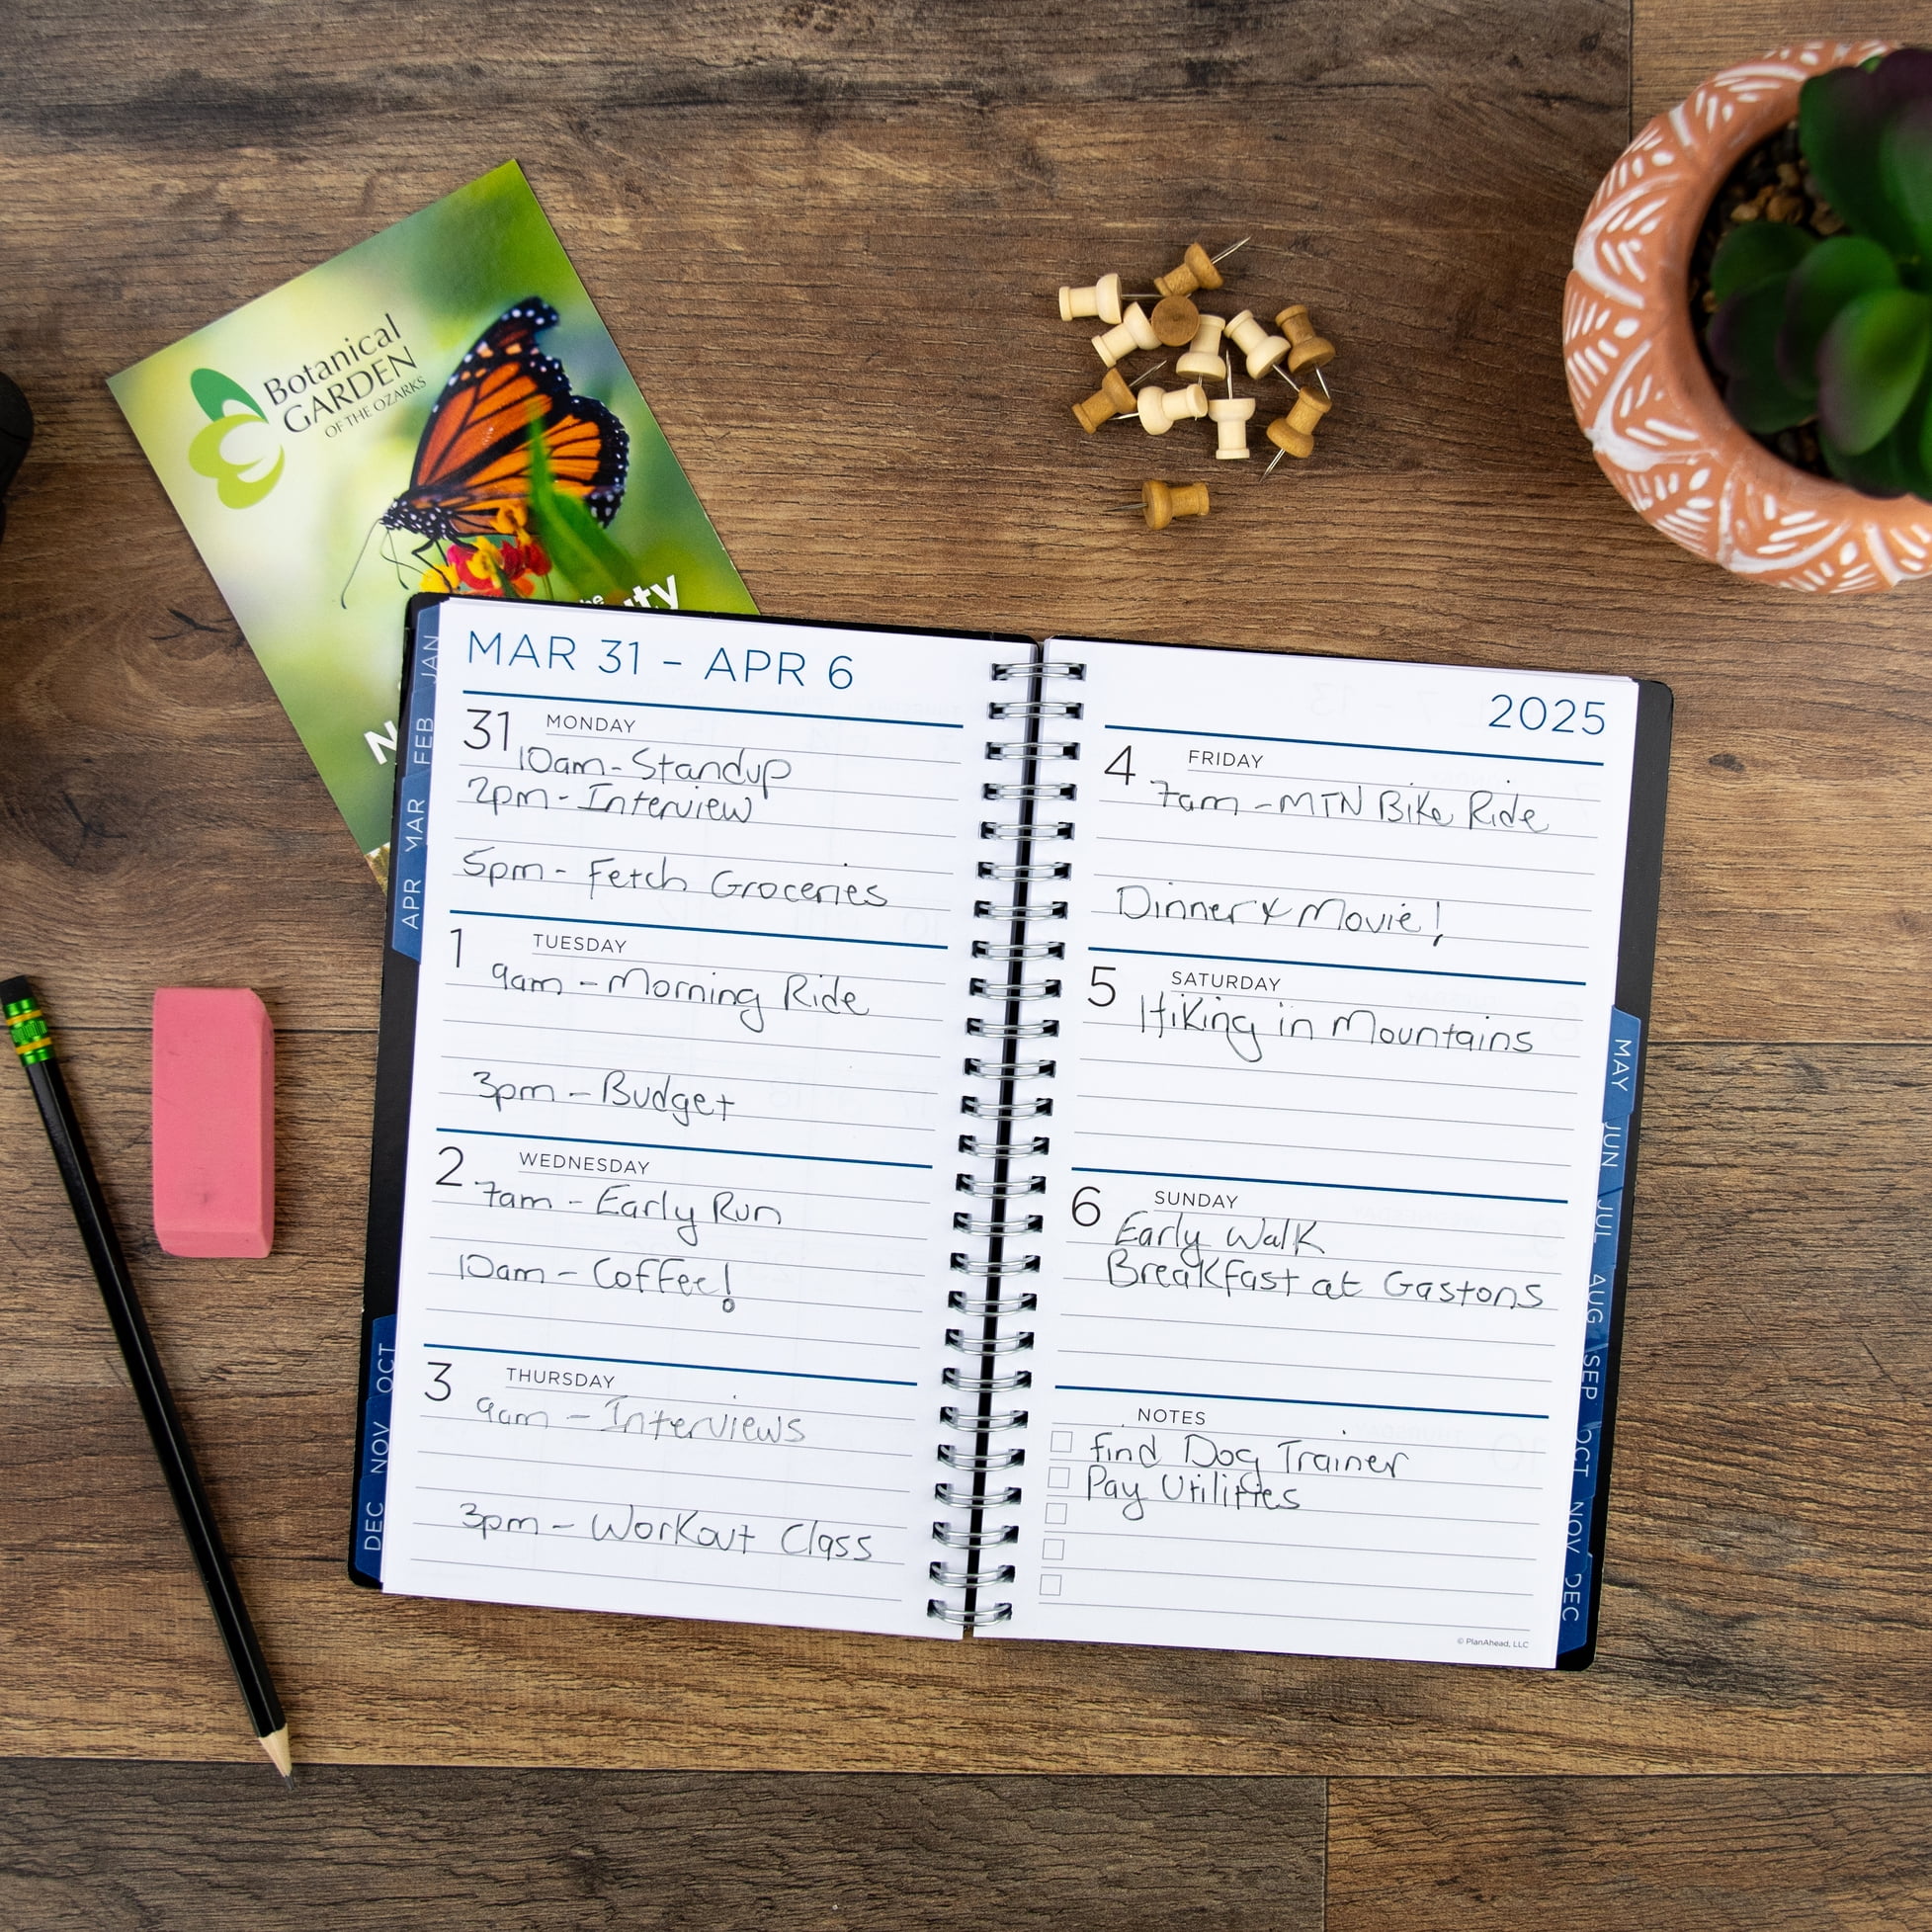 Botanical
GARDEN
OF THE OZARKS
MAR 31 – APR 6
31 MONDAY
10am - Standup
2pm - Interview
5pm - Fetch Groceries
1 TUESDAY
9am - Morning Ride
3pm - Budget
2 WEDNESDAY
7am - Early Run
10am - Coffee!
3 THURSDAY
9am - Interviews
3pm - Workout Class
2025
4 FRIDAY
7am - MTN Bike Ride
Dinner & Movie!
5 SATURDAY
Hiking in Mountains
6 SUNDAY
Early Walk
Breakfast at Gastons
NOTES
find Dog Trainer
Pay Utilities
© PlanAhead, LLC
JAN
FEB
MAR
APR
OCT
NOV
DEC
MAY
JUN
JUL
AUG
SEP
OCT
NOV
DEC